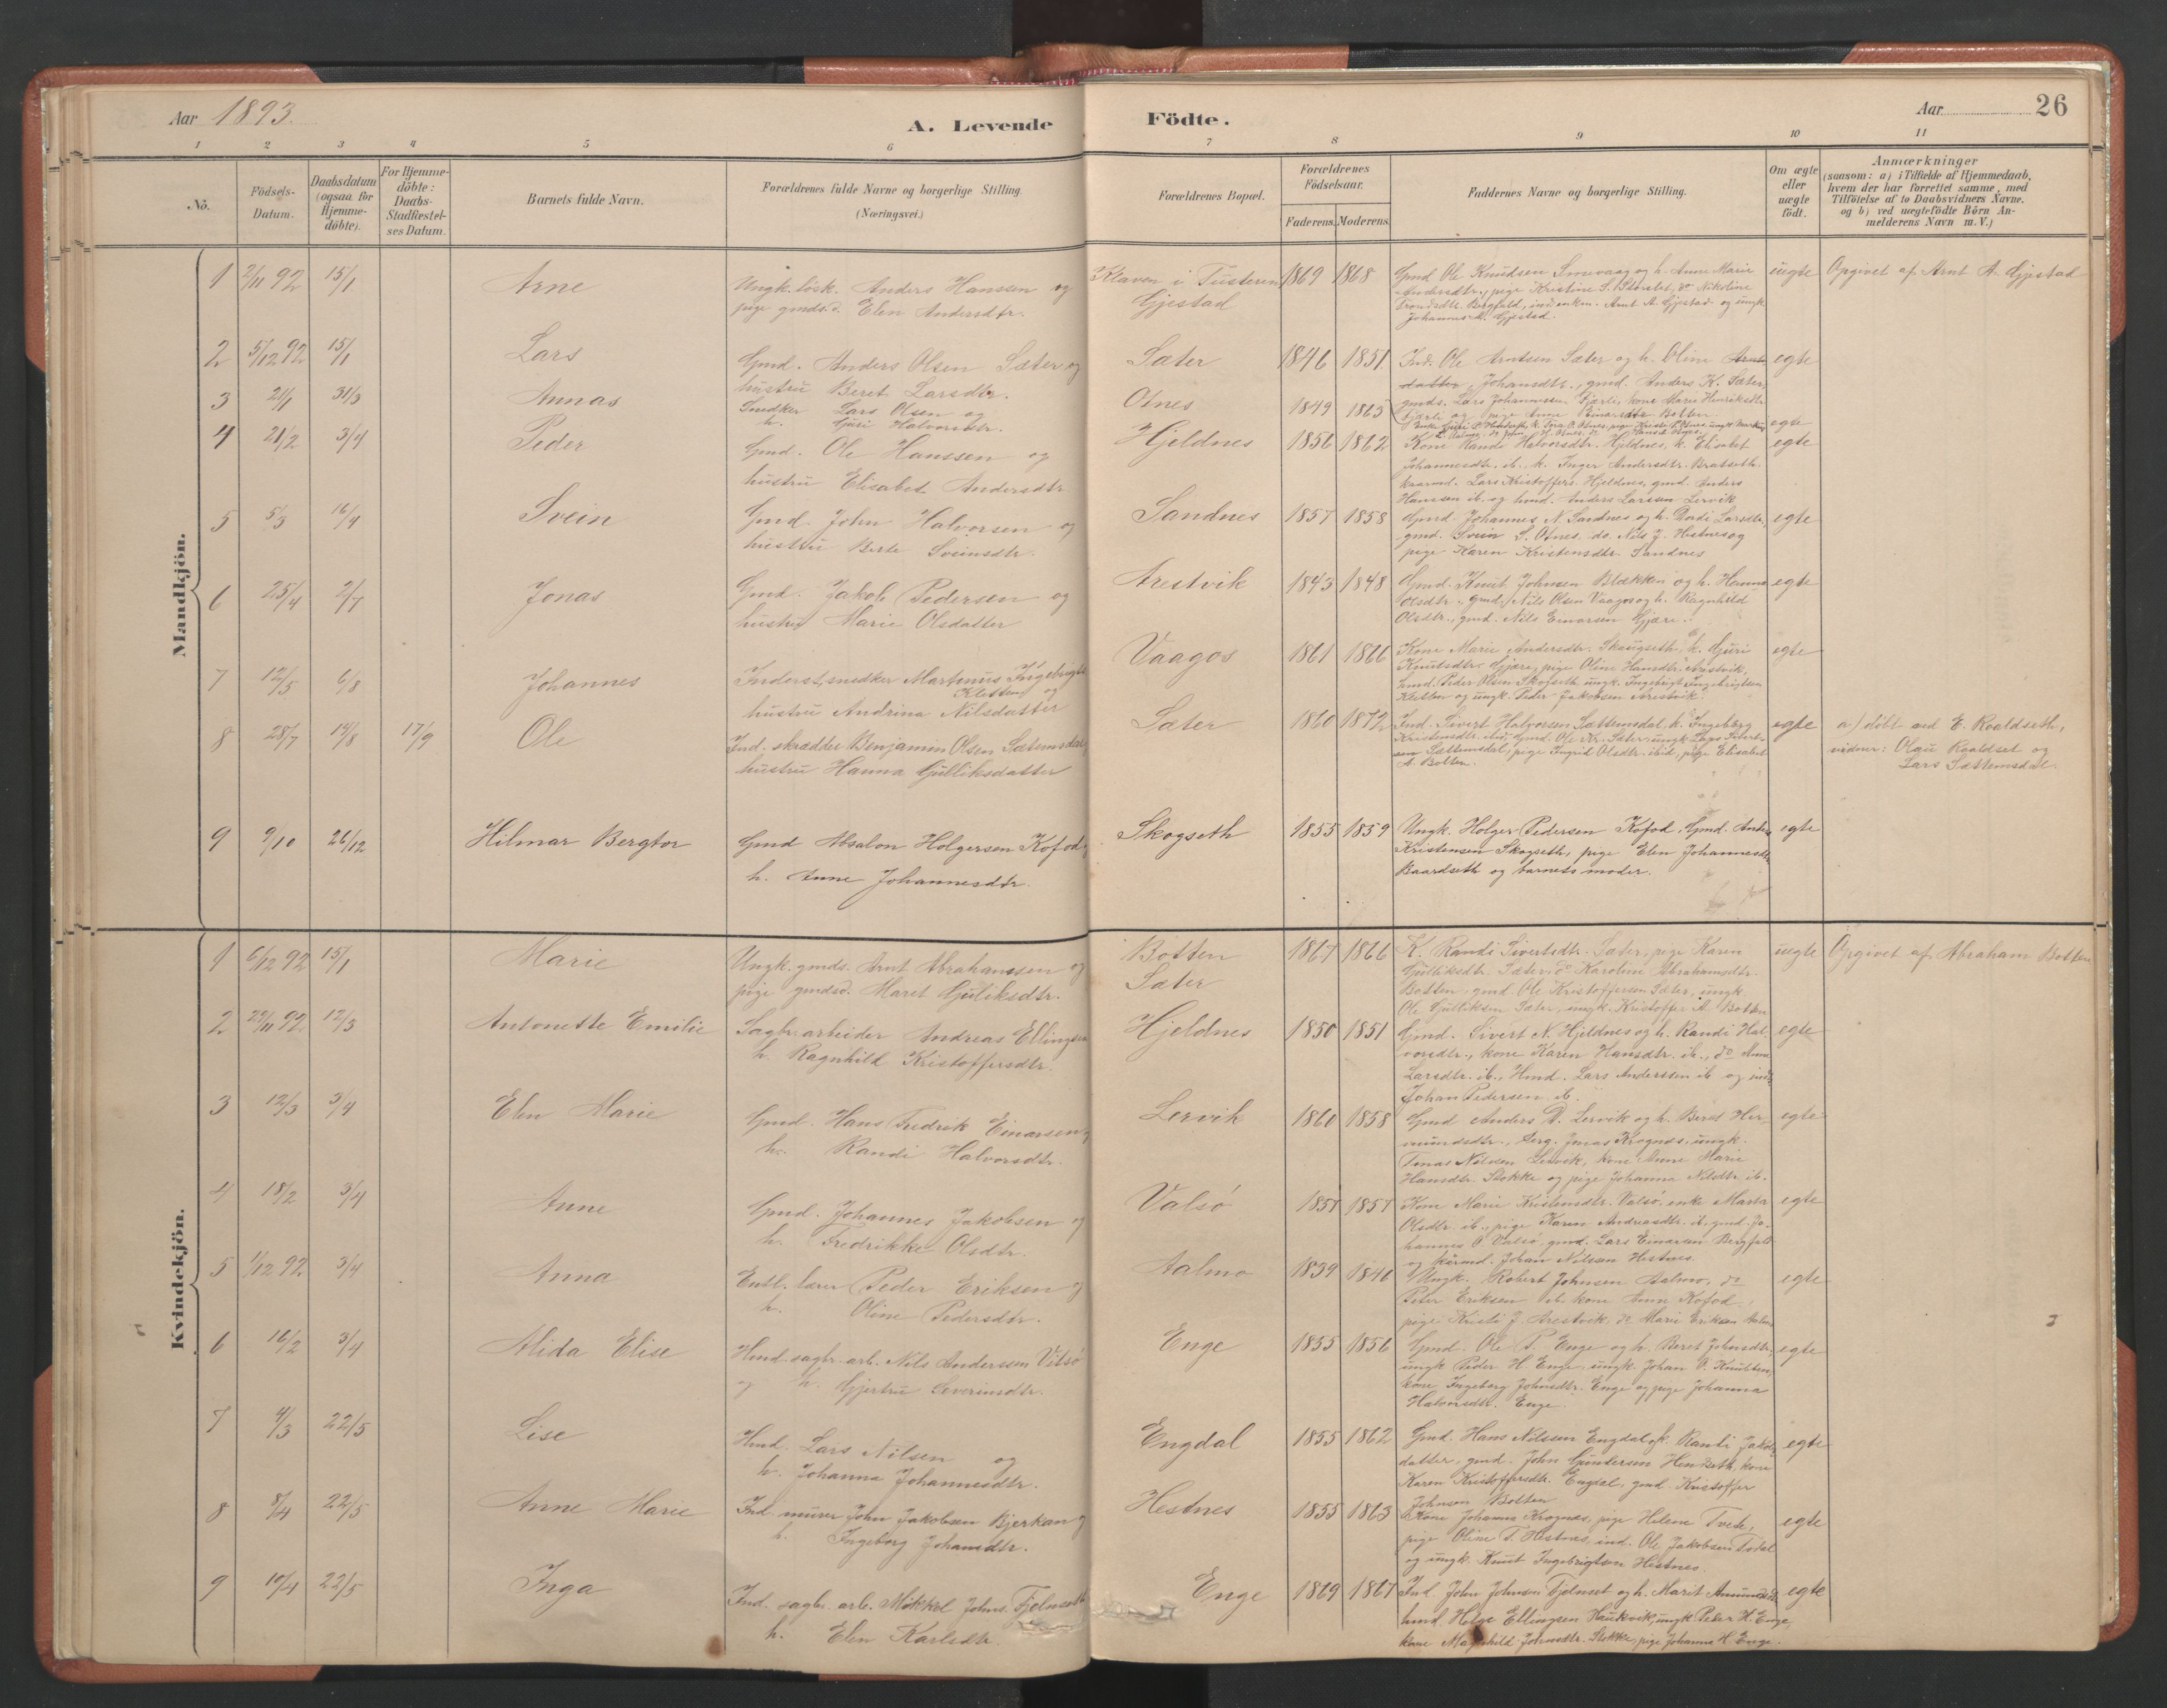 Aar 1893.
A. Levende Födte.
Aar 26
1 2 3 4 5 6 7 8 9 10 11
No.
Födsels-Datum.
Daabsdatum (ogsaa for Hjemme-döbte).
For Hjemme-döbte: Daabs-Stadfæstel-ses Datum.
Barnets fulde Navn.
Forældrenes fulde Navne og borgerlige Stilling.
(Næringsvei.)
Forældrenes Bopæl.
Forældrenes Födselsaar.
Faderens. Moderens.
Faddernes Navne og borgerlige Stilling.
Om ægte eller uægte födt.
Anmærkninger
(saasom: a) i Tilfælde af Hjemmedaab, hvem der har forrettet samme, med Tilföielse af to Daabsvidners Navne, og b) ved uægtefödte Börn An-melderens Navn m.V.)
Mandkjön.
1 2/11 92 15/1 Arne
Ungk. lösk. Anders Hanssen og
pige gmdsd. Elen Andersdtr.
Klaven i Tusteren
Gjestad
1869 1868
Gmd Ole Knudsen og h. Anne Marie
Andersdtr., pige Kristine S. do Nikoline
Trondsdtr. Bergfald, ind. enkm. Arnt A. Gjestad og ungk.
Johannes Gjestad.
uegte Opgivet af Arnt A. Gjestad
2 5/12 92 15/1 Lars
Gmd. Anders Olsen Sæter og
hustru Beret Larsdtr.
Sæter 1846 1851
Ind. Ole Arntsen Sæter og h. Oline Arnts
datter, Johansdtr., gmd. Anders K. Sæter,
gmds. Lars Johannessen Fjærli, kone Marie Henriksdtr.
Fjærli og pige Anne Einarsdtr Botten.
egte
3 21/1 31/3 Annas
Snedker Lars Olsen og
h. Guri Halvorsdtr.
Otnes 1849 1863
egte
4 21/2 3/4 Peder
Gmd. Ole Hanssen og
hustru Elisabet Andersdtr
Hjeldnes 1856 1862
Kone Randi Halvorsdtr. Hjeldnes, k. Elisabet
Johannesdtr. ib., k. Inger Andersdtr. Bratseth.
kaarmd. Lars Kristoffers. Hjeldnes, gmd. Anders
Hanssen ib. og hmd. Anders Larsen Lervik
egte
5 5/3 16/4 Svein
Gmd. John Halvorsen og
hustru Berte Sveinsdtr.
Sandnes 1857 1858
Gmd. Johannes N. Sandnes og h. Dordi Larsdtr,
gmd. Svein S. Otnes, do. Nils J. Hestnes og
pige Karen Kristensdtr. Sandnes
egte
6 25/4 2/7 Jonas
Gmd. Jakob Pedersen og
hustru Marie Olsdatter
Arestvik 1843 1848
Gmd. Knut Johnsen Blækken og h. Hanna
Olsdtr., gmd. Nils Olsen Vaagos og h. Ragnhild
Olsdtr., gmd. Nils Einarsen Gjære.
egte
7 12/5 6/8 Johannes
Inderst, snedker Martinus Ingebrigts
Kletten og
hustru Andrina Nilsdatter
Vaagos 1861 1866
Kone Marie Andersdtr. Skaugseth, k. Guri
Knutsdtr. Gjære, pige Oline Hansdtr. Arestvik,
hmd. Peder Olsen Skogseth, ungk. Ingebrigt Ingebrigtsen
Kletten og ungk. Peder Jakobsen Arestvik.
egte
8 28/7 14/8 17/9 Ole
Ind. skrædder Benjamin Olsen Sætemsdal,
hustru Hanna Gulliksdatter
Sæter 1860 1872
Ind. Sivert Halvorsen Sættemsdal, k. Ingeborg
Kristensdtr. ind. Gmd. Ole Kr. Sæter, ungk. Lars Sivert-
sen Sættemsdal, pige Ingrid Olsdtr. ibid., pige Elisabet
A. Botten.
egte
a) döbt ved E. Roaldseth,
vidner: Olau Roaldset og
Lars Sættemsdal.
9 9/10 26/12 Hilmar Bergtor
Gmd Absalon Holgersen Kofod og
h. Anne Johannesdtr.
Skogseth 1855 1859
Ungk. Holger Pedersen Kofod, Gmd. Anders
Kristensen Skogseth, pige Elen Johannesdtr
Baardseth og barnets moder.
egte
Kvindekjön.
1 6/12 92 15/1 Marie
Ungk. gmds. Arnt Abrahamssen og
pige gmdsd. Maret Gulliksdtr.
Botten
Sæter
1867 1866
K. Randi Sivertsdtr. Sæter, pige Karen
Gulliksdtr. Sæter, do Karoline Abrahamsdtr.
Botten, gmd. Ole Kristoffersen Sæter, ungk.
Ole Gulliksen Sæter, ungk. Kristoffer A. Botten
uegte Opgivet af Abraham Botten
2 29/11 92 12/3 Antonette Emilie
Sagbr. arbeider Andreas Ellingsen
h. Ragnhild Kristoffersdtr.
Hjeldnes 1850 1851
Gmd. Sivert N. Hjeldnes og h. Randi Hal-
vorsdtr., kone Karen Hansdtr. ib., do Anna
Larsdtr. ib., Hmd. Lars Anderssen ib. og ind.
Johan Pedersen ib.
egte
3 12/3 3/4 Elen Marie
Gmd. Hans Fredrik Einarsen og
h. Randi Halvorsdtr.
Lervik 1860 1858
Gmd Anders D. Lervik og h. Beret Her-
mundsdtr., Serg. Jonas Krognæs, ungk.
Tomas Nilsen Lervik, kone Anne Marie
Hansdtr Stokke og pige Johanna Nilsdtr. ib.
egte
4 18/2 3/4 Anne
Gmd. Johannes Jakobsen og
h. Fredrikke Olsdtr.
Valsö 1857 1857
Kone Marie Kristensdtr. Valsö, enke Marta
Olsdtr. ib., pige Karen Andreasdtr. ib., gmd. Jo-
hannes O Valsö, gmd. Lars Einarsen Bergfald
og kårmd. Johan Nilssen Hestnes.
egte
5 1/12 92 3/4 Anna
Entl. lærer Peder Eriksen og
h. Oline Pedersdtr.
Aalmo 1839 1846
Ungk. Robert Johnsen Aalmo, do
Peter Eriksen ib. kone Anne Kofod,
pige Kristi J. Arestvik, do Marie Eriksen Aalmo
egte
6 16/2 3/4 Alida Elise
Hmd. sagbr. arb. Nils Anderssen Vitsö
og h. Gjertru Severinsdtr.
Enge 1855 1856
Gmd. Ole P. Enge og h. Beret Johnsdtr,
ungk Peder H Enge, ungk. Johan O. Knutsen,
kone Ingeborg Johnsdtr. Enge og pige Johanna
Halvorsdtr. Enge.
egte
7 4/3 22/5 Lise
Hmd. Lars Nilsen og
h. Johanna Johannesdtr.
Engdal 1855 1862
Gmd. Hans Nilssen Engdal, k. Randi Jakobs
datter, gmd. John Gundersen Hendseth, kone
Karen Kristoffersdtr. Engdal, gmd. Kristoffer
Johnsen Botten
egte
8 8/4 22/5 Anne Marie
Ind. murer John Jakobsen Bjerkan og
h. Ingeborg Johansdtr.
Hestnes 1855 1863
Kone Johanna Krognæs, pige Helene Tvete,
pige Oline T. Hestnes, ind. Ole Jakobsen Todal
og ungk. Knut Ingebrigtsen Hestnes.
egte
9 19/4 22/5 Inga
Ind. sagbr. arb. Mikkel Johns. Fjelnseth
h. Elen Karlsdtr.
Enge 1869 1867
Ind. John Johnsen Fjelnset og h. Marit Amundsdtr
hmd. Helge Ellingsen Haukvik, ungk Peder H. Enge,
kone Magnhild Johnsdtr. Stokke, pige Johanna H. Enge.
egte